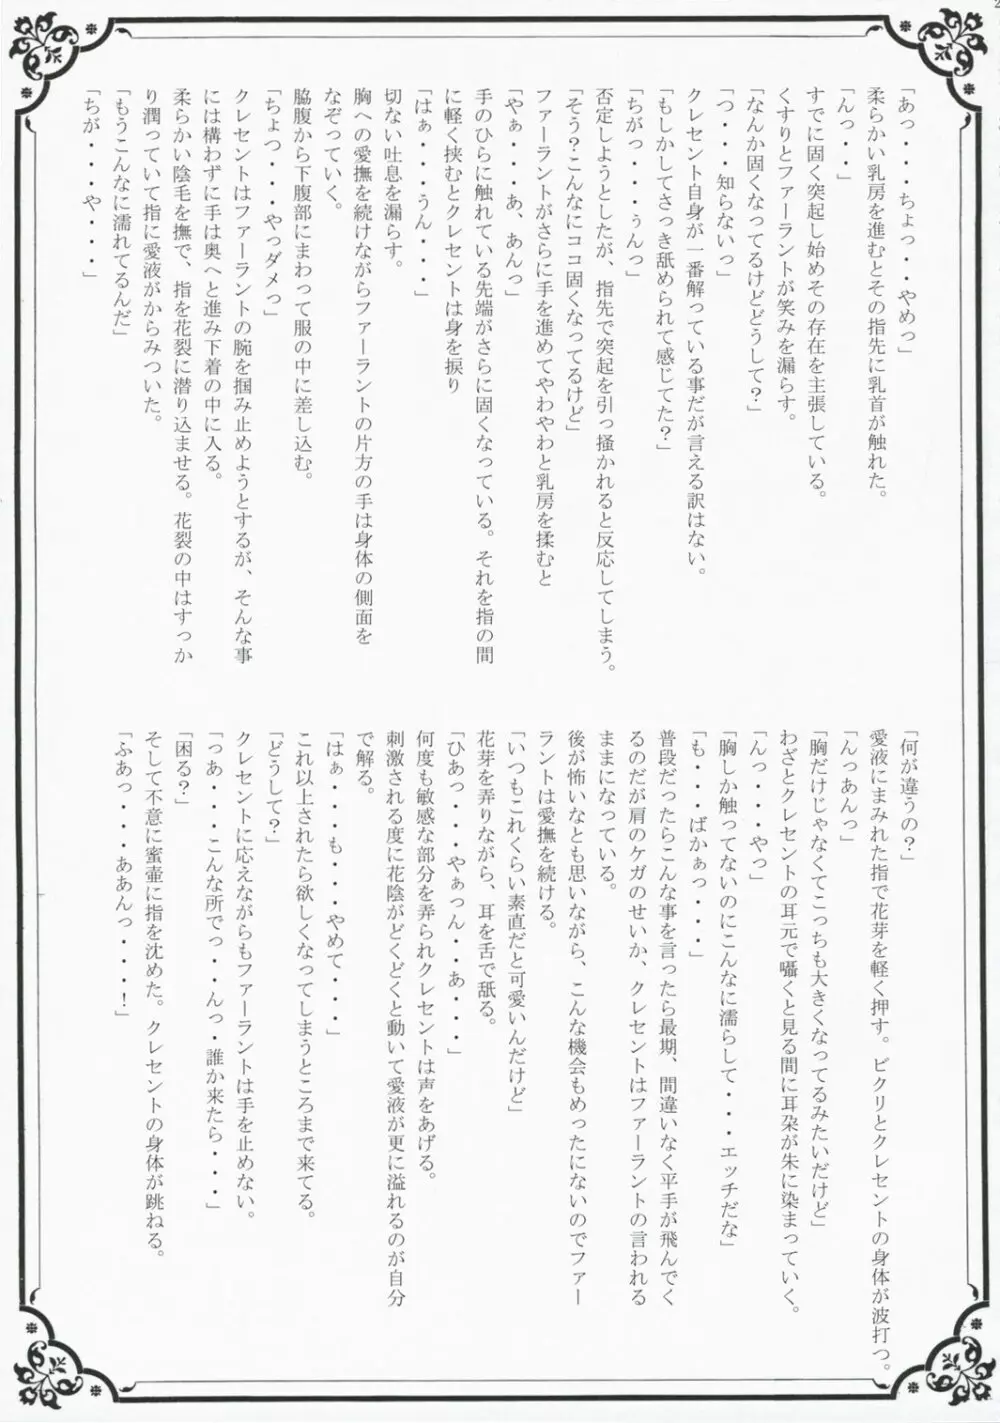 「あっ・・・ちょっ・・やめっ」
柔らかい乳房を進むとその指先に乳首が触れた。
「んっ・・」
すでに固く突起し始めその存在を主張している。
くすりとファーラントが笑みを漏らす。
「なんか固くなってるけどどうして？」
「つ・・・知らないっ」
クレセント自身が一番解っている事だが言える訳はない。
「もしかしてさっき舐められて感じてた？」
「ちがっ・・・ぅんっ」
否定しようとしたが、指先で突起を引っ掻かれると反応してしまう。
「そう？こんなにココ固くなってるけど」
ファーラントがさらに手を進めてやわやわと乳房を揉むと
「やぁ・・・あ、あんっ」
手のひらに触れている先端がさらに固くなっている。それを指の間
に軽く挟むとクレセントは身を捩り
「はぁ・・・うん・・・」
切ない吐息を漏らす。
胸への愛撫を続けながらファーラントの片方の手は身体の側面を
なぞっていく。
脇腹から下腹部にまわって服の中に差し込む。
「ちょつ・・・やっダメっ」
クレセントはファーラントの腕を掴み止めようとするが、そんな事
には構わずに手は奥へと進み下着の中に入る。
柔らかい陰毛を撫で、指を花裂に潜り込ませる。花裂の中はすっか
り潤っていて指に愛液がからみついた。
「もうこんなに濡れてるんだ」
「ちが・・・や・・・」
「何が違うの？」
愛液にまみれた指で花芽を軽く押す。ビクリとクレセントの身体が波打つ。
「んっあんっ」
「胸だけじゃなくてこっちも大きくなってるみたいだけど」
わざとクレセントの耳元で囁くと見る間に耳朶が朱に染まっていく。
「んっ・・・やっ」
「胸しか触ってないのにこんなに濡らして・・・エッチだな」
「も・・・ばかぁっ・・・」
普段だったらこんな事を言ったら最期、間違いなく平手が飛んでく
るのだが肩のケガのせいか、クレセントはファーラントの言われる
ままになっている。
後が怖いなとも思いながら、こんな機会もめったにないのでファー
ラントは愛撫を続ける。
「いつもこれくらい素直だと可愛いんだけど」
花芽を弄りながら、耳を舌で舐る。
「ひあっ・・・やぁっん・・あ・・・」
何度も敏感な部分を弄られクレセントは声をあげる。
刺激される度に花陰がどくどくと動いて愛液が更に溢れるのが自分
で解る。
「はぁ・・・も・・・やめて・・・」
これ以上されたら欲しくなってしまうところまで来てる。
「どうして？」
クレセントに応えながらもファーラントは手を止めない。
「っあ・・・こんな所でっ・・んっ・誰か来たら・・・」
「困る？」
そして不意に蜜壷に指を沈めた。クレセントの身体が跳ねる。
「ふあっ・・・ああんっ・・・！」